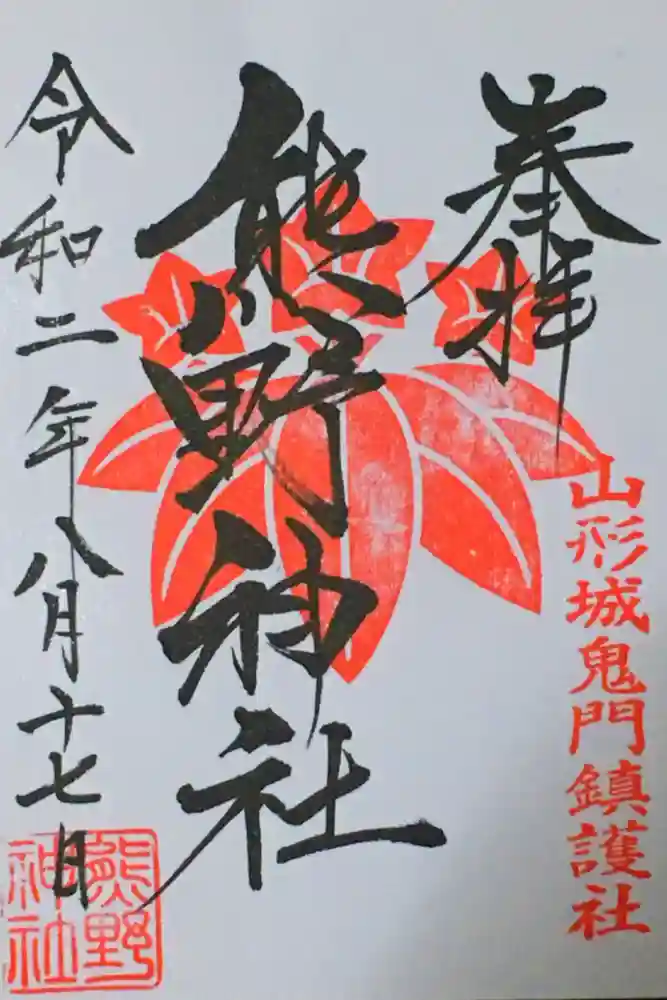 奉拝
山形城鬼門鎮護社
熊野神社
令和二年八月十七日
熊野
神社